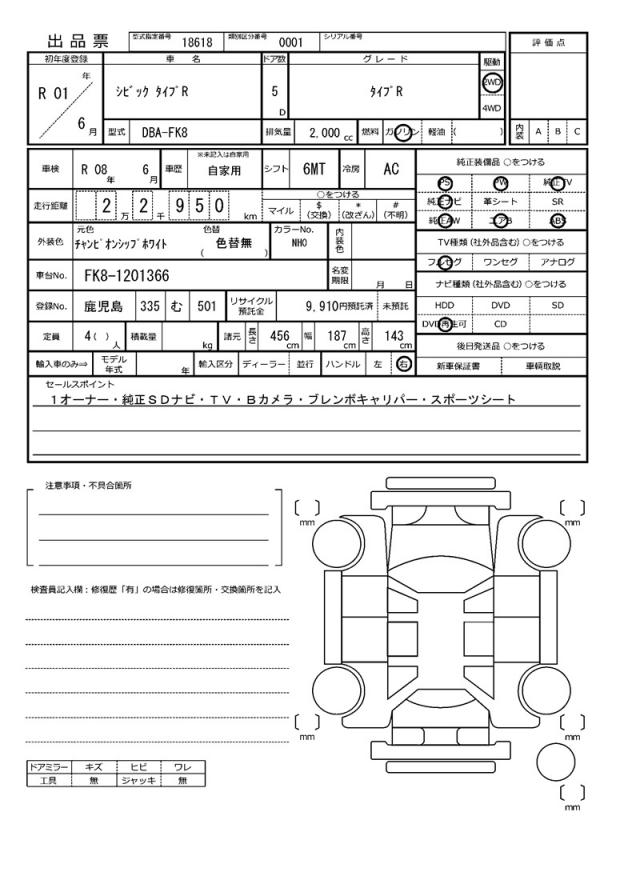 出品票 型式指定番号 18618 類別区分番号 0001 シリアル番号
評価点
初年度登録 車名 ドア数 グレード 駆動
R 01 年 6 月 シビック タイプR 5 D タイプR 2WD 4WD
型式 DBA-FK8 排気量 2,000 cc 燃料 ガソリン 軽油 ( ) 内装 A B C
車検 R 08 年 6 月 車歴 ※未記入は自家用 自家用 シフト 6MT 冷房 AC
走行距離 2 万 2 千 9 5 0 km ○をつける マイル $ (交換) * (改ざん) # (不明)
外装色 元色 チャンピオンシップホワイト 色替 色替無 ( ) カラーNo. NH0 内装色
車台No. FK8-1201366 名変期限 月 日
登録No. 鹿児島 335 む 501 リサイクル預託金 9,910円預託済 未預託
定員 4( ) 人 積載量 kg 諸元 長さ 456 cm 幅 187 cm 高さ 143 cm
輸入車のみ⇒ モデル年式 年 輸入区分 ディーラー 並行 ハンドル 左 右
純正装備品 ○をつける
PS PW 純正TV
純正ナビ 革シート SR
純正AW エアB ABS
TV種類 (社外品含む) ○をつける
フルセグ ワンセグ アナログ
ナビ種類 (社外品含む) ○をつける
HDD DVD SD
DVD再生可 CD
後日発送品 ○をつける
新車保証書 車輌取説
セールスポイント
1オーナー・純正SDナビ・TV・Bカメラ・ブレンボキャリパー・スポーツシート
注意事項・不具合箇所
検査員記入欄：修復歴「有」の場合は修復箇所・交換箇所を記入
ドアミラー キズ ヒビ ワレ
工具 無 ジャッキ 無
mm
mm
mm
mm
mm